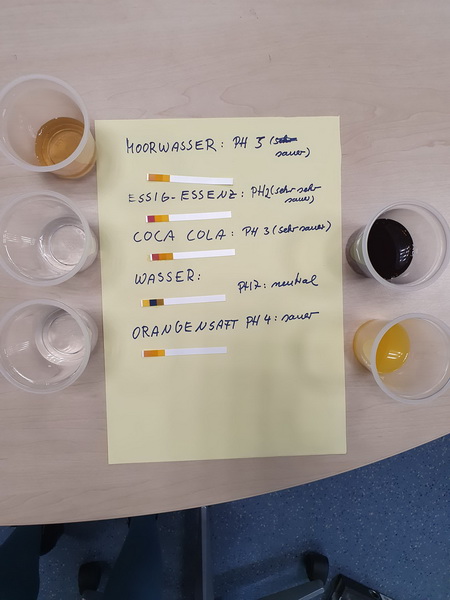 MOORWASSER: PH 5 (
sauer)
ESSIG-ESSENZ: PH2 (sehr sehr
sauer)
COCA COLA: PH 3 (sehr sauer)
WASSER:
PH7: neutral
ORANGENSAFT PH 4: sauer